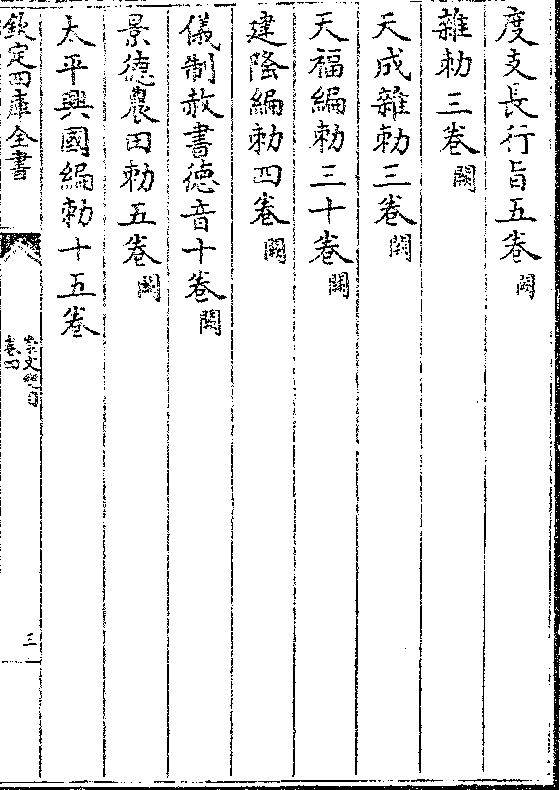 度支長行旨五卷闕
雜勅三卷闕
天成雜勅三卷闕
天福編勅三十卷闕
建隆編勅四卷闕
儀制赦書德音十卷闕
景德農田勅五卷闕
太平興國編勅十五卷
欽定四庫全書
崇文總目
卷四
三